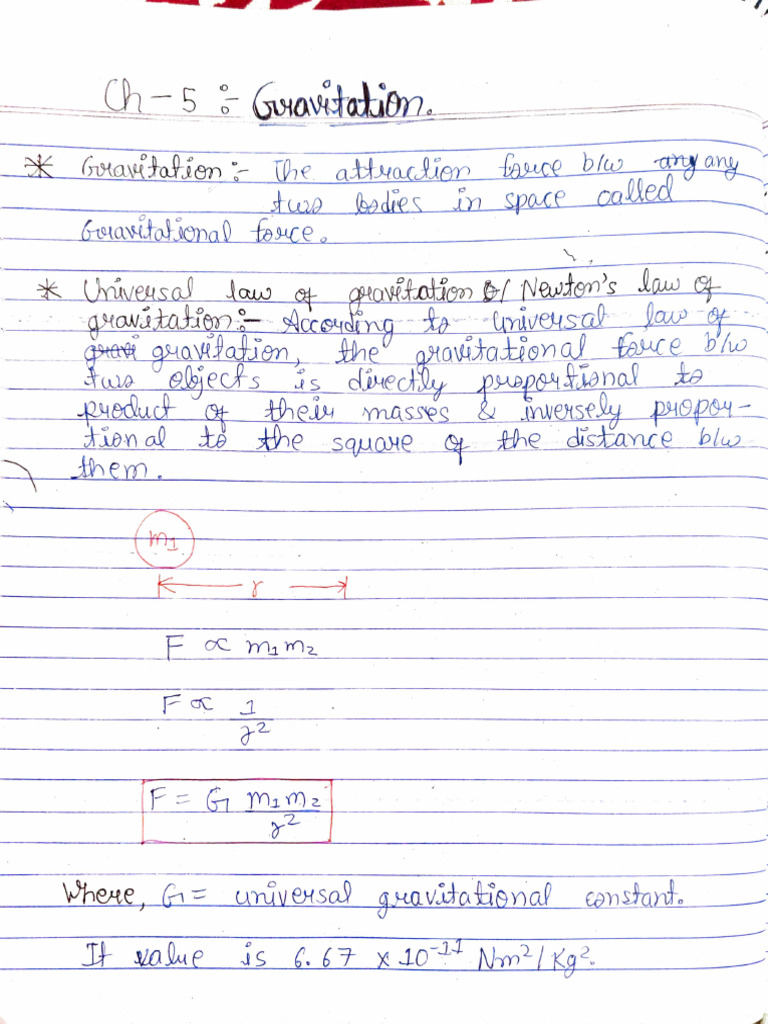 Ch - 5 :- Gravitation.
* Gravitation:- The attraction force b/w any any
two bodies in space called
Gravitational force.
* Universal law of gravitation Or/ Newton's law of
gravitation:- According to universal law of
gravi gravitation, the gravitational force b/w
two objects is directly proportional to
product of their masses & inversely propor-
tional to the square of the distance b/w
them.
m1
r
F ∝ m1m2
F ∝ 1/r²
F = G m1m2/r²
Where, G = universal gravitational constant.
It value is 6.67 × 10⁻¹¹ Nm²/Kg².